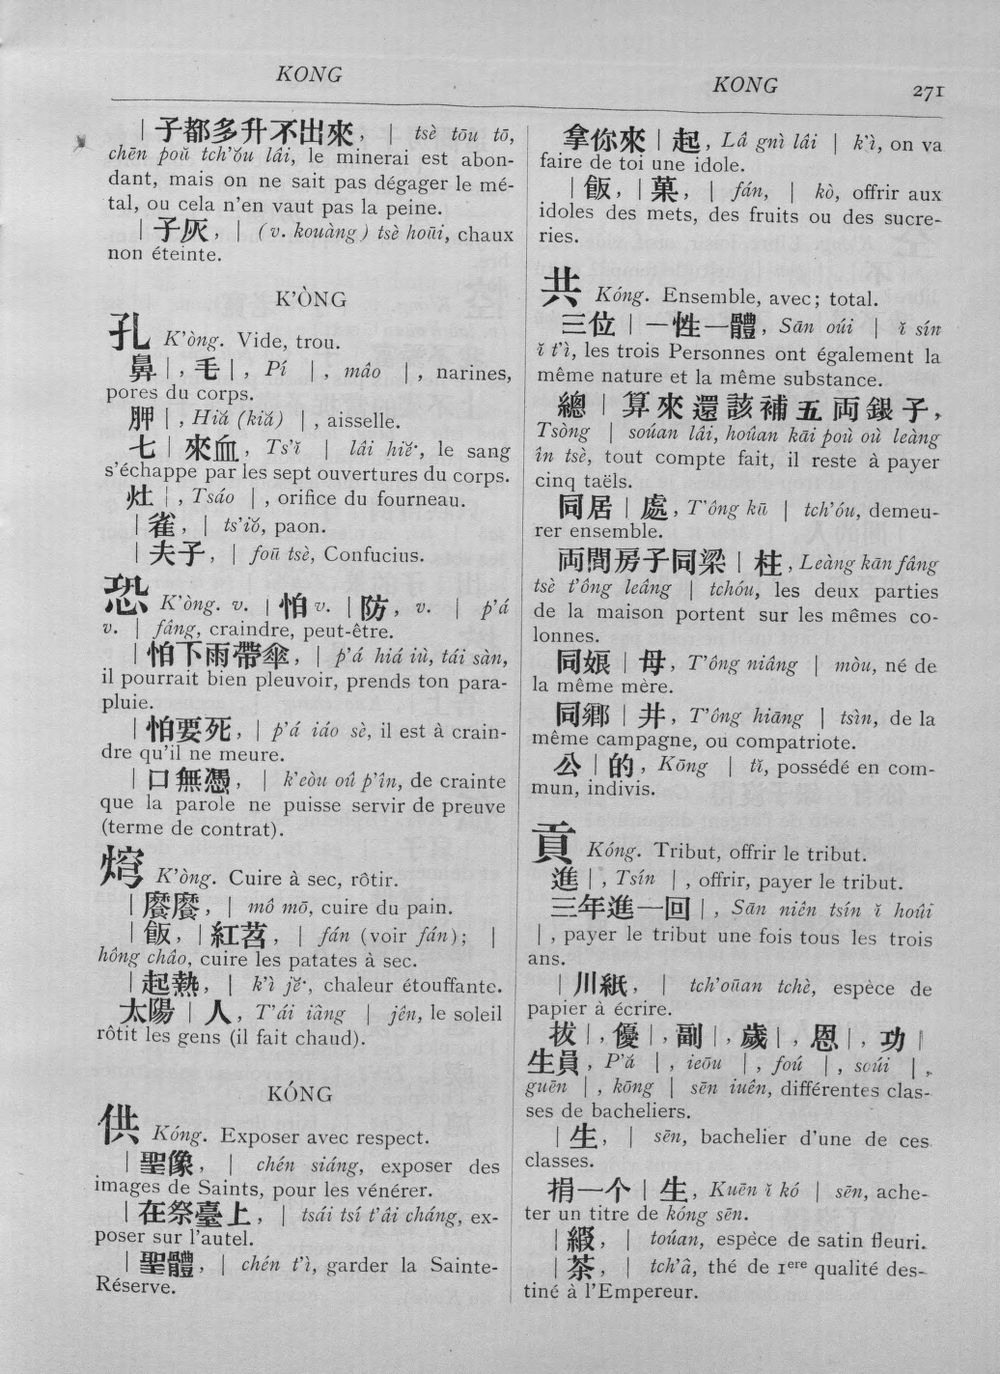 KONG
KONG
271
| 子都多升不出來, | tsè tōu tō,
chēn poŭ tch'ŏu lâi, le minerai est abon-
dant, mais on ne sait pas dégager le mé-
tal, ou cela n'en vaut pas la peine.
| 子灰, | (v. kouàng) tsè hoūi, chaux
non éteinte.
K'ÒNG
孔 K'òng. Vide, trou.
鼻 |, 毛 |, Pí |, mâo |, narines,
pores du corps.
胛 |, Hiă (kiă) |, aisselle.
七 | 來血, Ts'ĭ | lâi hiĕ·, le sang
s'échappe par les sept ouvertures du corps.
灶 |, Tsáo |, orifice du fourneau.
| 雀, | ts'iŏ, paon.
| 夫子, | foū tsè, Confucius.
恐 K'òng. v. | 怕 v. | 防, v. | p'á
v. | fâng, craindre, peut-être.
| 怕下雨帶傘, | p'á hiá iù, tái sàn,
il pourrait bien pleuvoir, prends ton para-
pluie.
| 怕要死, | p'á iáo sè, il est à crain-
dre qu'il ne meure.
| 口無憑, | k'eòu oû p'în, de crainte
que la parole ne puisse servir de preuve
(terme de contrat).
K'òng. Cuire à sec, rôtir.
| 䬵䬵, | mô mō, cuire du pain.
| 飯, | 紅苕, | fán (voir fán); |
hông châo, cuire les patates à sec.
| 起熱, | k'ì jĕ·, chaleur étouffante.
太陽 | 人, T'ái iâng | jên, le soleil
rôtit les gens (il fait chaud).
KÓNG
供 Kóng. Exposer avec respect.
| 聖像, | chén siáng, exposer des
images de Saints, pour les vénérer.
| 在祭臺上, | tsái tsí t'âi cháng, ex-
poser sur l'autel.
| 聖體, | chén t'ì, garder la Sainte-
Réserve.
拿你來 | 起, Lâ gnì lâi | k'ì, on va
faire de toi une idole.
| 飯, | 菓, | fán, | kò, offrir aux
idoles des mets, des fruits ou des sucre-
ries.
共 Kóng. Ensemble, avec; total.
三位 | 一性一體, Sān oúi | ĭ sín
ĭ t'ì, les trois Personnes ont également la
même nature et la même substance.
總 | 算來還該補五両銀子,
Tsòng | soúan lâi, hoûan kāi poù où leàng
în tsè, tout compte fait, il reste à payer
cinq taëls.
同居 | 處, T'ông kū | tch'óu, demeu-
rer ensemble.
両間房子同梁 | 柱, Leàng kān fâng
tsè t'ông leâng | tchóu, les deux parties
de la maison portent sur les mêmes co-
lonnes.
同娘 | 母, T'ông niâng | mòu, né de
la même mère.
同鄉 | 井, T'ông hiāng | tsìn, de la
même campagne, ou compatriote.
公 | 的, Kōng | tĭ, possédé en com-
mun, indivis.
貢 Kóng. Tribut, offrir le tribut.
進 |, Tsín |, offrir, payer le tribut.
三年進一回 |, Sān niên tsín ĭ hoûi
|, payer le tribut une fois tous les trois
ans.
| 川紙, | tch'oūan tchè, espèce de
papier à écrire.
拔 |, 優 |, 副 |, 歲 |, 恩 |, 功 |
生員, P'á |, ieōu |, foú |, soúi |,
guēn |, kōng | sēn iuên, différentes clas-
ses de bacheliers.
| 生, | sēn, bachelier d'une de ces
classes.
捐一个 | 生, Kuēn ĭ kó | sēn, ache-
ter un titre de kóng sēn.
| 緞, | toúan, espèce de satin fleuri.
| 茶, | tch'â, thé de 1ere qualité des-
tiné à l'Empereur.